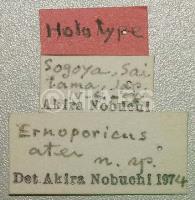 Holotype
Sogoya, Sai
tama, Jap.
Akira Nobuchi
Ernoporicus
ater n. sp.
Det. Akira Nobuchi 1974